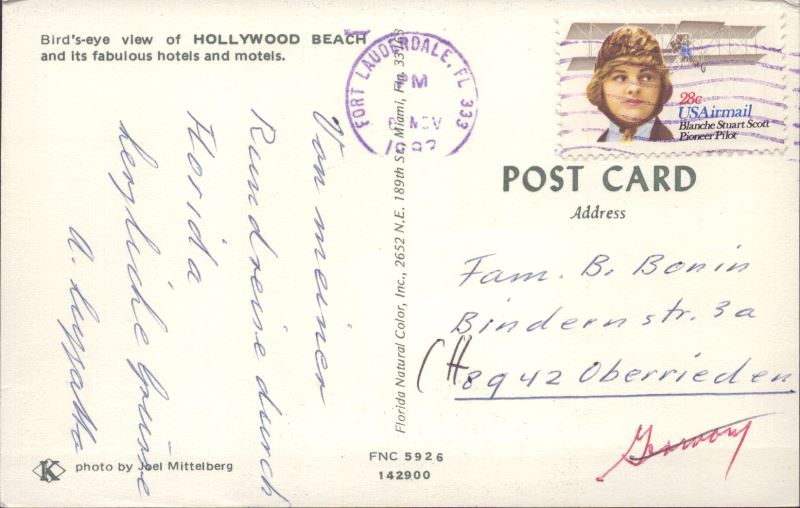 Bird's-eye view of HOLLYWOOD BEACH
and its fabulous hotels and motels.
Von meiner
Rundreise durch
Florida
herzliche Grüsse
photo by Joel Mittelberg
Florida Natural Color, Inc., 2652 N.E. 189th St., Miami, Fla. 33163
FNC 5926
142900
FORT LAUDERDALE, FL 333
PM
NOV
28c
USAirmail
Blanche Stuart Scott
Pioneer Pilot
POST CARD
Address
Fam. B. Bonin
Bindernstr. 3a
(H 8942 Oberrieden
Germany